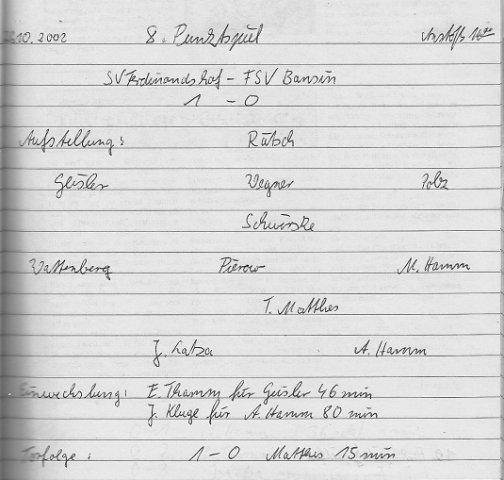 10.2002 8. Punktspiel Anstoß 14⁰⁰
SV Ferdinandshof - FSV Bansin
1 - 0
Aufstellung: Rätsch
Geisler Wegner Polz
Schwirske
Wattenberg Pierow M. Hamm
T. Matthes
J. Latza A. Hamm
Einwechslung: E. Thamm für Geisler 46 min
J. Kluge für A. Hamm 80 min
Torfolge: 1-0 Matthes 15 min